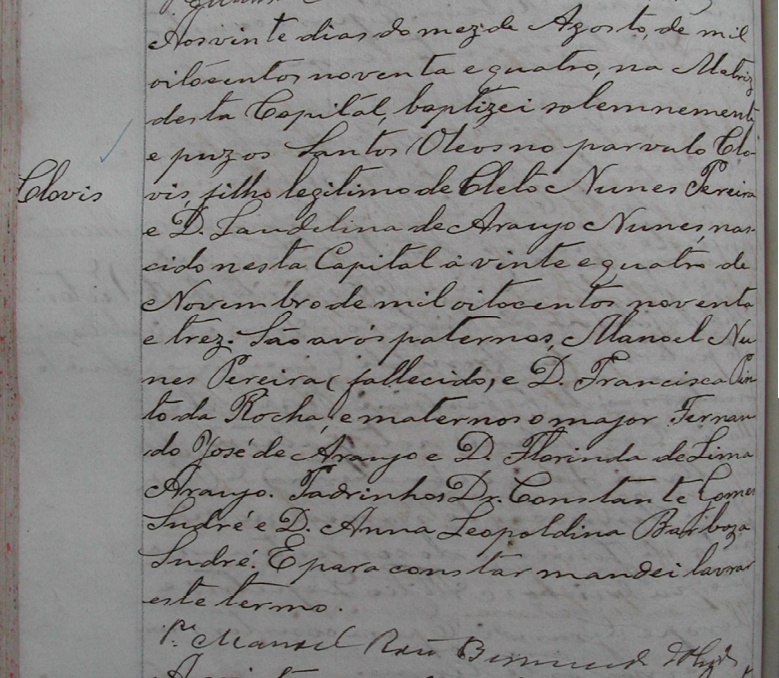 Aos vinte dias do mez de Agosto, de mil
oitocentos noventa e quatro, na Matriz
desta Capital, baptizei solemnemente
e puz os Santos Oleos no parvulo Clo-
Clovis
vis, filho legitimo de Cleto Nunes Pereira
e D. Laudelina de Araujo Nunes, nas-
cido nesta Capital a vinte e quatro de
Novembro de mil oitocentos noventa
e trez. São avós paternos, Manoel Nu
nes Pereira (fallecido, e D. Francisca Pin
to da Rocha, e maternos o major Fernan
do José de Araujo e D. Florinda de Lima
Araujo. Padrinhos Dr. Constante Gomes
Sudré e D. Anna Leopoldina Barboza
Sudré. E para constar mandei lavrar
este termo.
Pe. Manoel